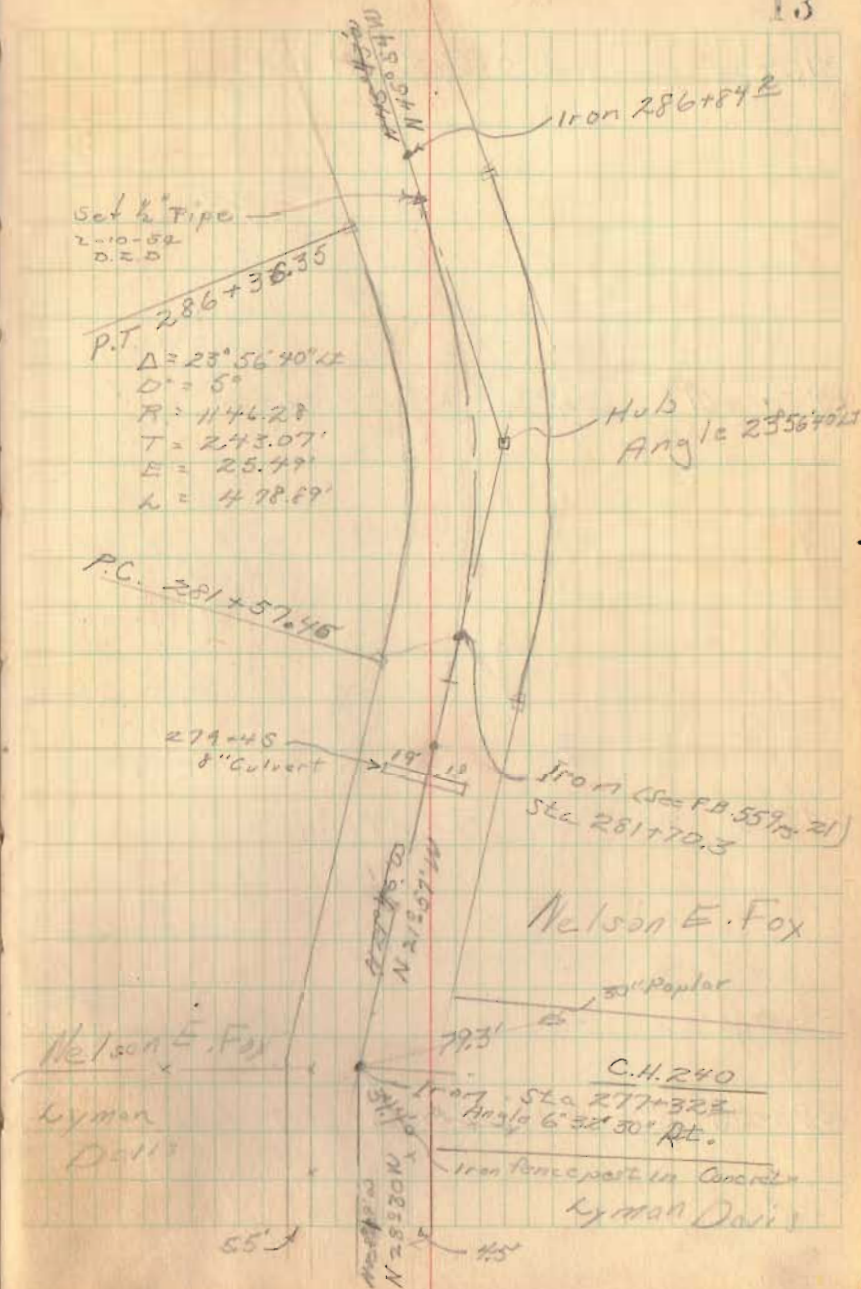 13
Iron 286+84 2
N 45° 54' W
Set ½" Pipe
2-10-54
D.Z.D
P.T. 286+36.35
Δ = 23° 56' 40" Lt
D° = 5°
R = 1146.28
T = 243.07'
E = 25.49'
L = 478.89'
Hub
Angle 23° 56' 40" Lt
P.C. 281+57.46
279+46
8" Culvert
19' 18
Iron (See F.B. 559 p. 21)
Sta 281+70.3
N 21° 57' W
Nelson E. Fox
30" Poplar
79.3'
Nelson E. Fox
C.H. 240
Iron Sta 277+32 2
Angle 6° 32' 30" Rt.
Lyman
Davis
Iron fence post in Concrete
Lyman Davis
N 28° 30' W
55'
45'